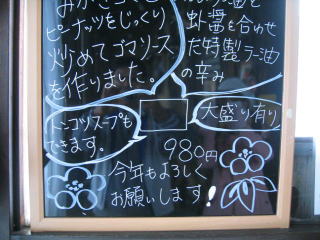 ピーナッツをじっくり
炒めてゴマソース
を作りました。
蝦醤を合わせ
た特製ラー油
の辛み
トンコツスープも
できます。
大盛り有り
980円
今年もよろしく
お願いします!